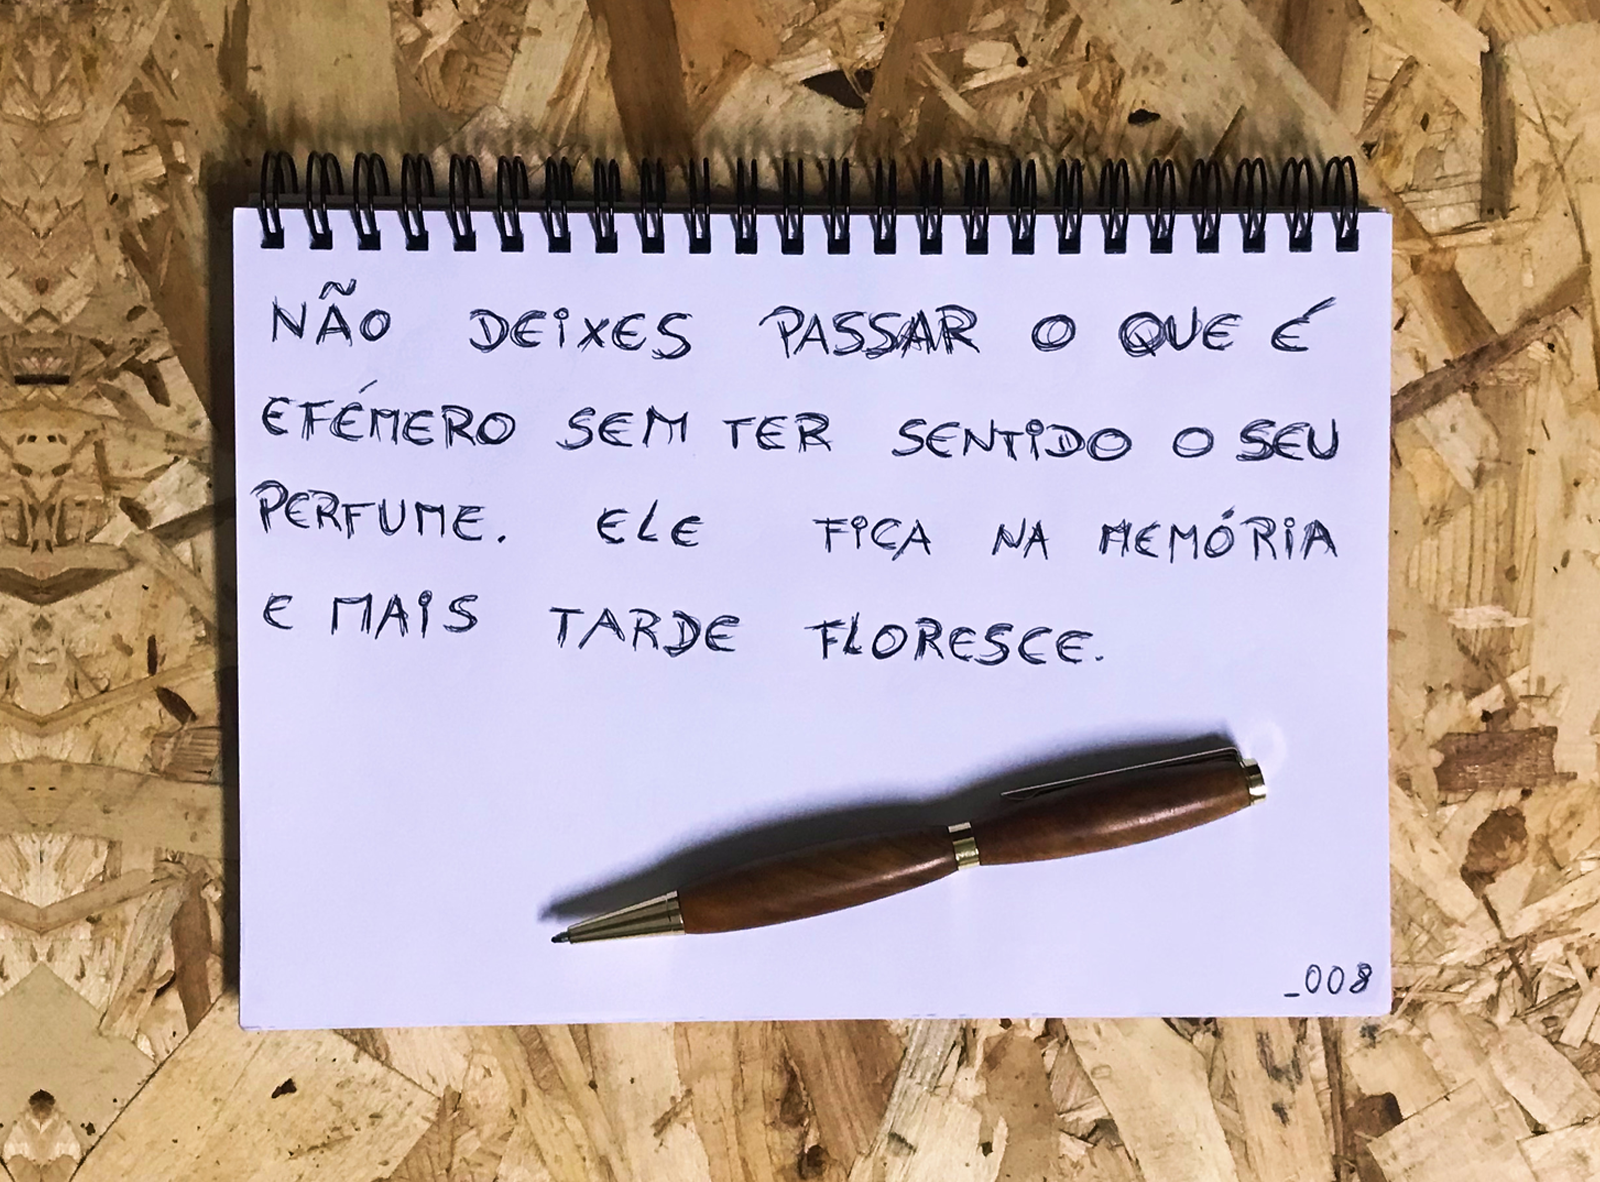 NÃO DEIXES PASSAR O QUE É
EFÉMERO SEM TER SENTIDO O SEU
PERFUME. ELE FICA NA MEMÓRIA
E MAIS TARDE FLORESCE.
_008